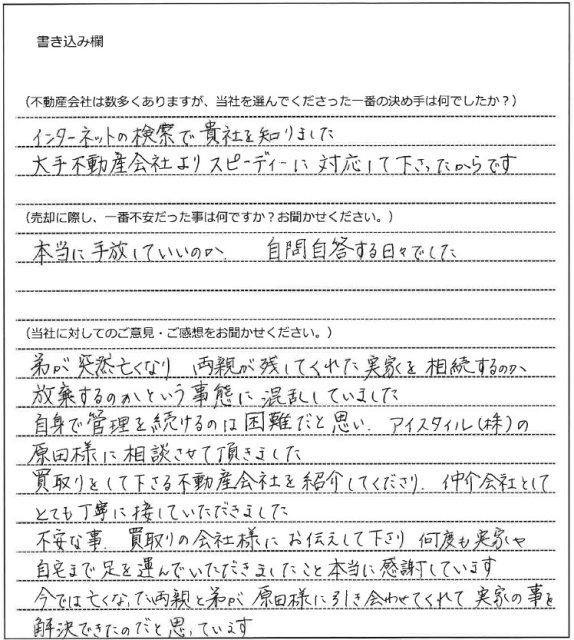 書き込み欄
（不動産会社は数多くありますが、当社を選んでくださった一番の決め手は何でしたか？）
インターネットの検索で貴社を知りました
大手不動産会社よりスピーディーに対応して下さったからです
（売却に際し、一番不安だった事は何ですか？お聞かせください。）
本当に手放していいのか、自問自答する日々でした
（当社に対してのご意見・ご感想をお聞かせください。）
弟が突然亡くなり 両親が残してくれた実家を相続するのか、
放棄するのかという事態に混乱していました
自身で管理を続けるのは困難だと思い、アイスタイル（株）の
原田様に相談させて頂きました
買取りをして下さる不動産会社を紹介してくださり、仲介会社として
とても丁寧に接していただきました
不安な事、買取りの会社様にお伝えして下さり 何度も実家や
自宅まで足を運んでいただきましたこと本当に感謝しています
今では亡くなった両親と弟が 原田様に引き合わせてくれて 実家の事を
解決できたのだと思っています